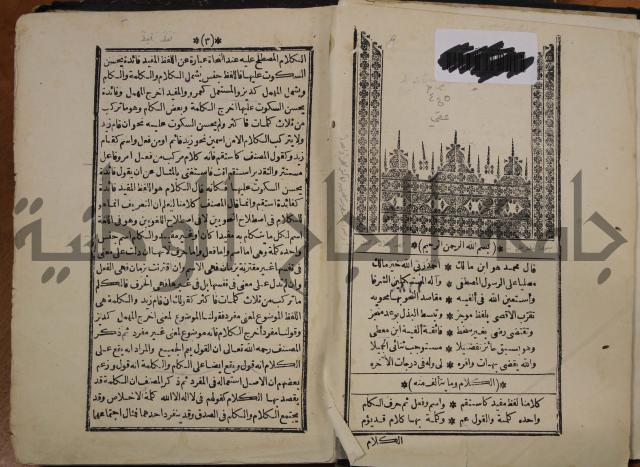 (بسم الله الرحمن الرحيم)
قال محمد هو ابن مالك * أحمد ربي الله خير مالك
مصليا على الرسول المصطفى * وآله المستكملين الشرفا
وأستعين الله في ألفيه * مقاصد النحو بها محويه
تقرب الأقصى بلفظ موجز * وتبسط البذل بوعد منجز
وتقتضي رضى بغير سخط * فائقة ألفية ابن معطي
وهو بسبق حائز تفضيلا * مستوجب ثنائي الجميلا
والله يقضي بهبات وافره * لي وله في درجات الآخره
(الكلام وما يتألف منه)
كلامنا لفظ مفيد كاستقم * واسم وفعل ثم حرف الكلم
واحده كلمة والقول عم * وكلمة بها كلام قد يؤم
الكلام
(٣)
الكلام المصطلح عليه عند النحاة عبارة عن اللفظ المفيد فائدة يحسن
السكوت عليها فاللفظ جنس يشمل الكلام والكلمة والكلم
ويشمل المهمل كديز والمستعمل كعمرو والمفيد أخرج المهمل وفائدة
يحسن السكوت عليها أخرج الكلمة وبعض الكلم وهو ما تركب
من ثلاث كلمات فأكثر ولم يحسن السكوت عليه نحو إن قام زيد
ولا يتركب الكلام إلا من اسمين نحو زيد قائم أو من فعل واسم كقام
زيد وكقول المصنف كاستقم فإنه كلام مركب من فعل أمر وفاعل
مستتر والتقدير استقم أنت فاستغنى بالمثال عن أن يقول فائدة
يحسن السكوت عليها فكأنه قال الكلام هو اللفظ المفيد فائدة
كفائدة استقم وإنما قال المصنف كلامنا ليعلم أن التعريف إنما هو
للكلام في اصطلاح النحويين لا في اصطلاح اللغويين وهو في اللغة
اسم لكل ما يتكلم به مفيدا كان أو غير مفيد والكلم اسم جنس
واحده كلمة وهي إما اسم وإما فعل وإما حرف لأنها إن دلت على معنى
في نفسها غير مقترنة بزمان فهي الاسم وإن اقترنت بزمان فهي الفعل
وإن لم تدل على معنى في نفسها بل في غيرها فهي الحرف فالكلم
ما تركب من ثلاث كلمات فأكثر كقولك إن قام زيد والكلمة هي
اللفظ الموضوع لمعنى مفرد فقولنا الموضوع لمعنى أخرج المهمل كديز
وقولنا مفرد أخرج الكلام فإنه موضوع لمعنى غير مفرد ثم ذكر
المصنف رحمه الله تعالى أن القول يعم الجميع والمراد أنه يقع على
الكلام أنه قول ويقع أيضا على الكلم والكلمة أنه قول وزعم
بعضهم أن الأصل استعماله في المفرد ثم ذكر المصنف أن الكلمة قد
يقصد بها الكلام كقولهم في لا إله إلا الله كلمة الإخلاص وقد
يجتمع الكلام والكلم في الصدق وقد ينفرد أحدهما فمثال اجتماعهما
جامعة النجاح الوطنية